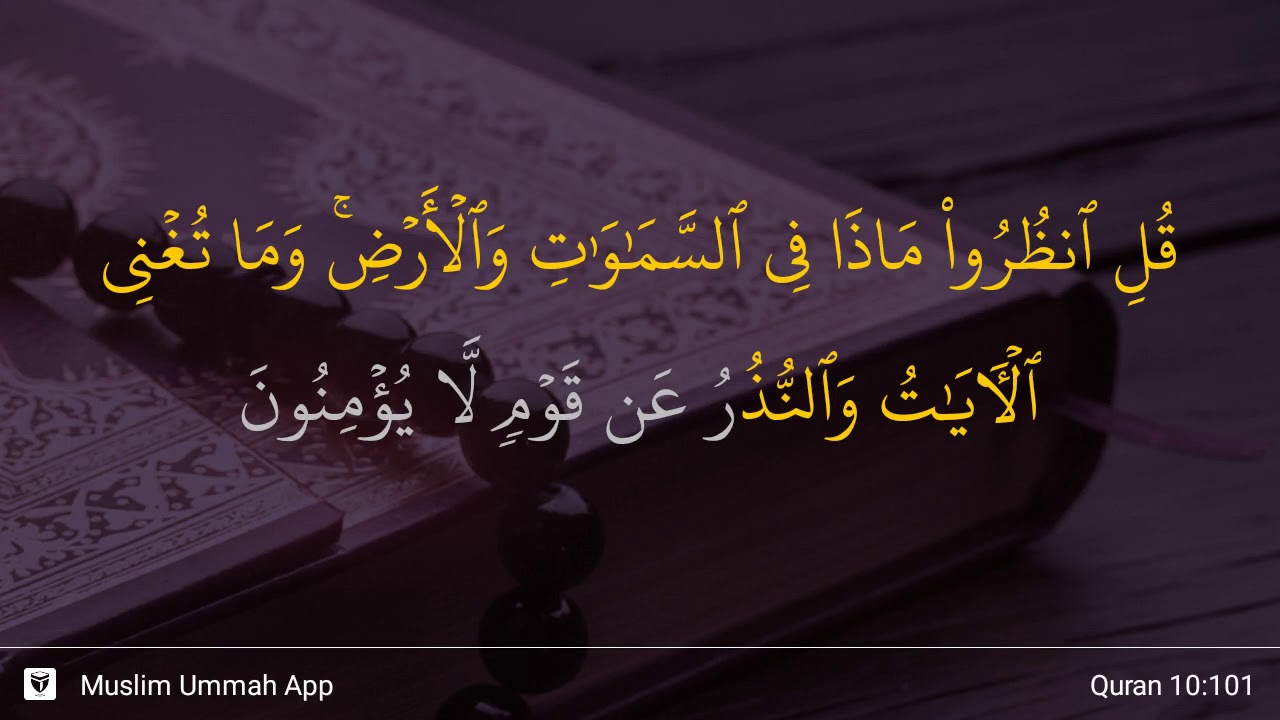 قُلِ ٱنظُرُوا۟ مَاذَا فِى ٱلسَّمَـٰوَٰتِ وَٱلْأَرْضِ ۚ وَمَا تُغْنِى
ٱلْـَٔايَـٰتُ وَٱلنُّذُرُ عَن قَوْمٍ لَّا يُؤْمِنُونَ
Muslim Ummah App
Quran 10:101